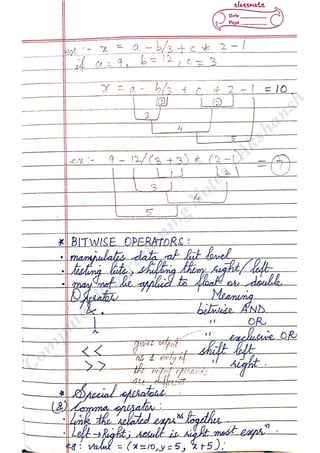 classmate
Date
Page
ex :- x = a - b/3 + c * 2 - 1
if a = 9, b = 12, c = 3
x = a - b/3 + c * 2 - 1 = 10
1 2
3
4
5
ex :- 9 - 12/(3 + 3) * (2 - 1) = 7
1 2
3
4
5
* BITWISE OPERATORS :
• manipulates data at bit level
• testing bits, shifting them right/left
• may not be applied to float or double
Operator Meaning
& bitwise AND
| " OR
^ " exclusive OR
<< shift left
>> " right
gives output
as 1 only if
the input
are different
* Special operators
Comma operator :
• Link the related exprns together.
• Left → Right; result is right most exprn.
eg : value = (x = 10, y = 5, x + 5);